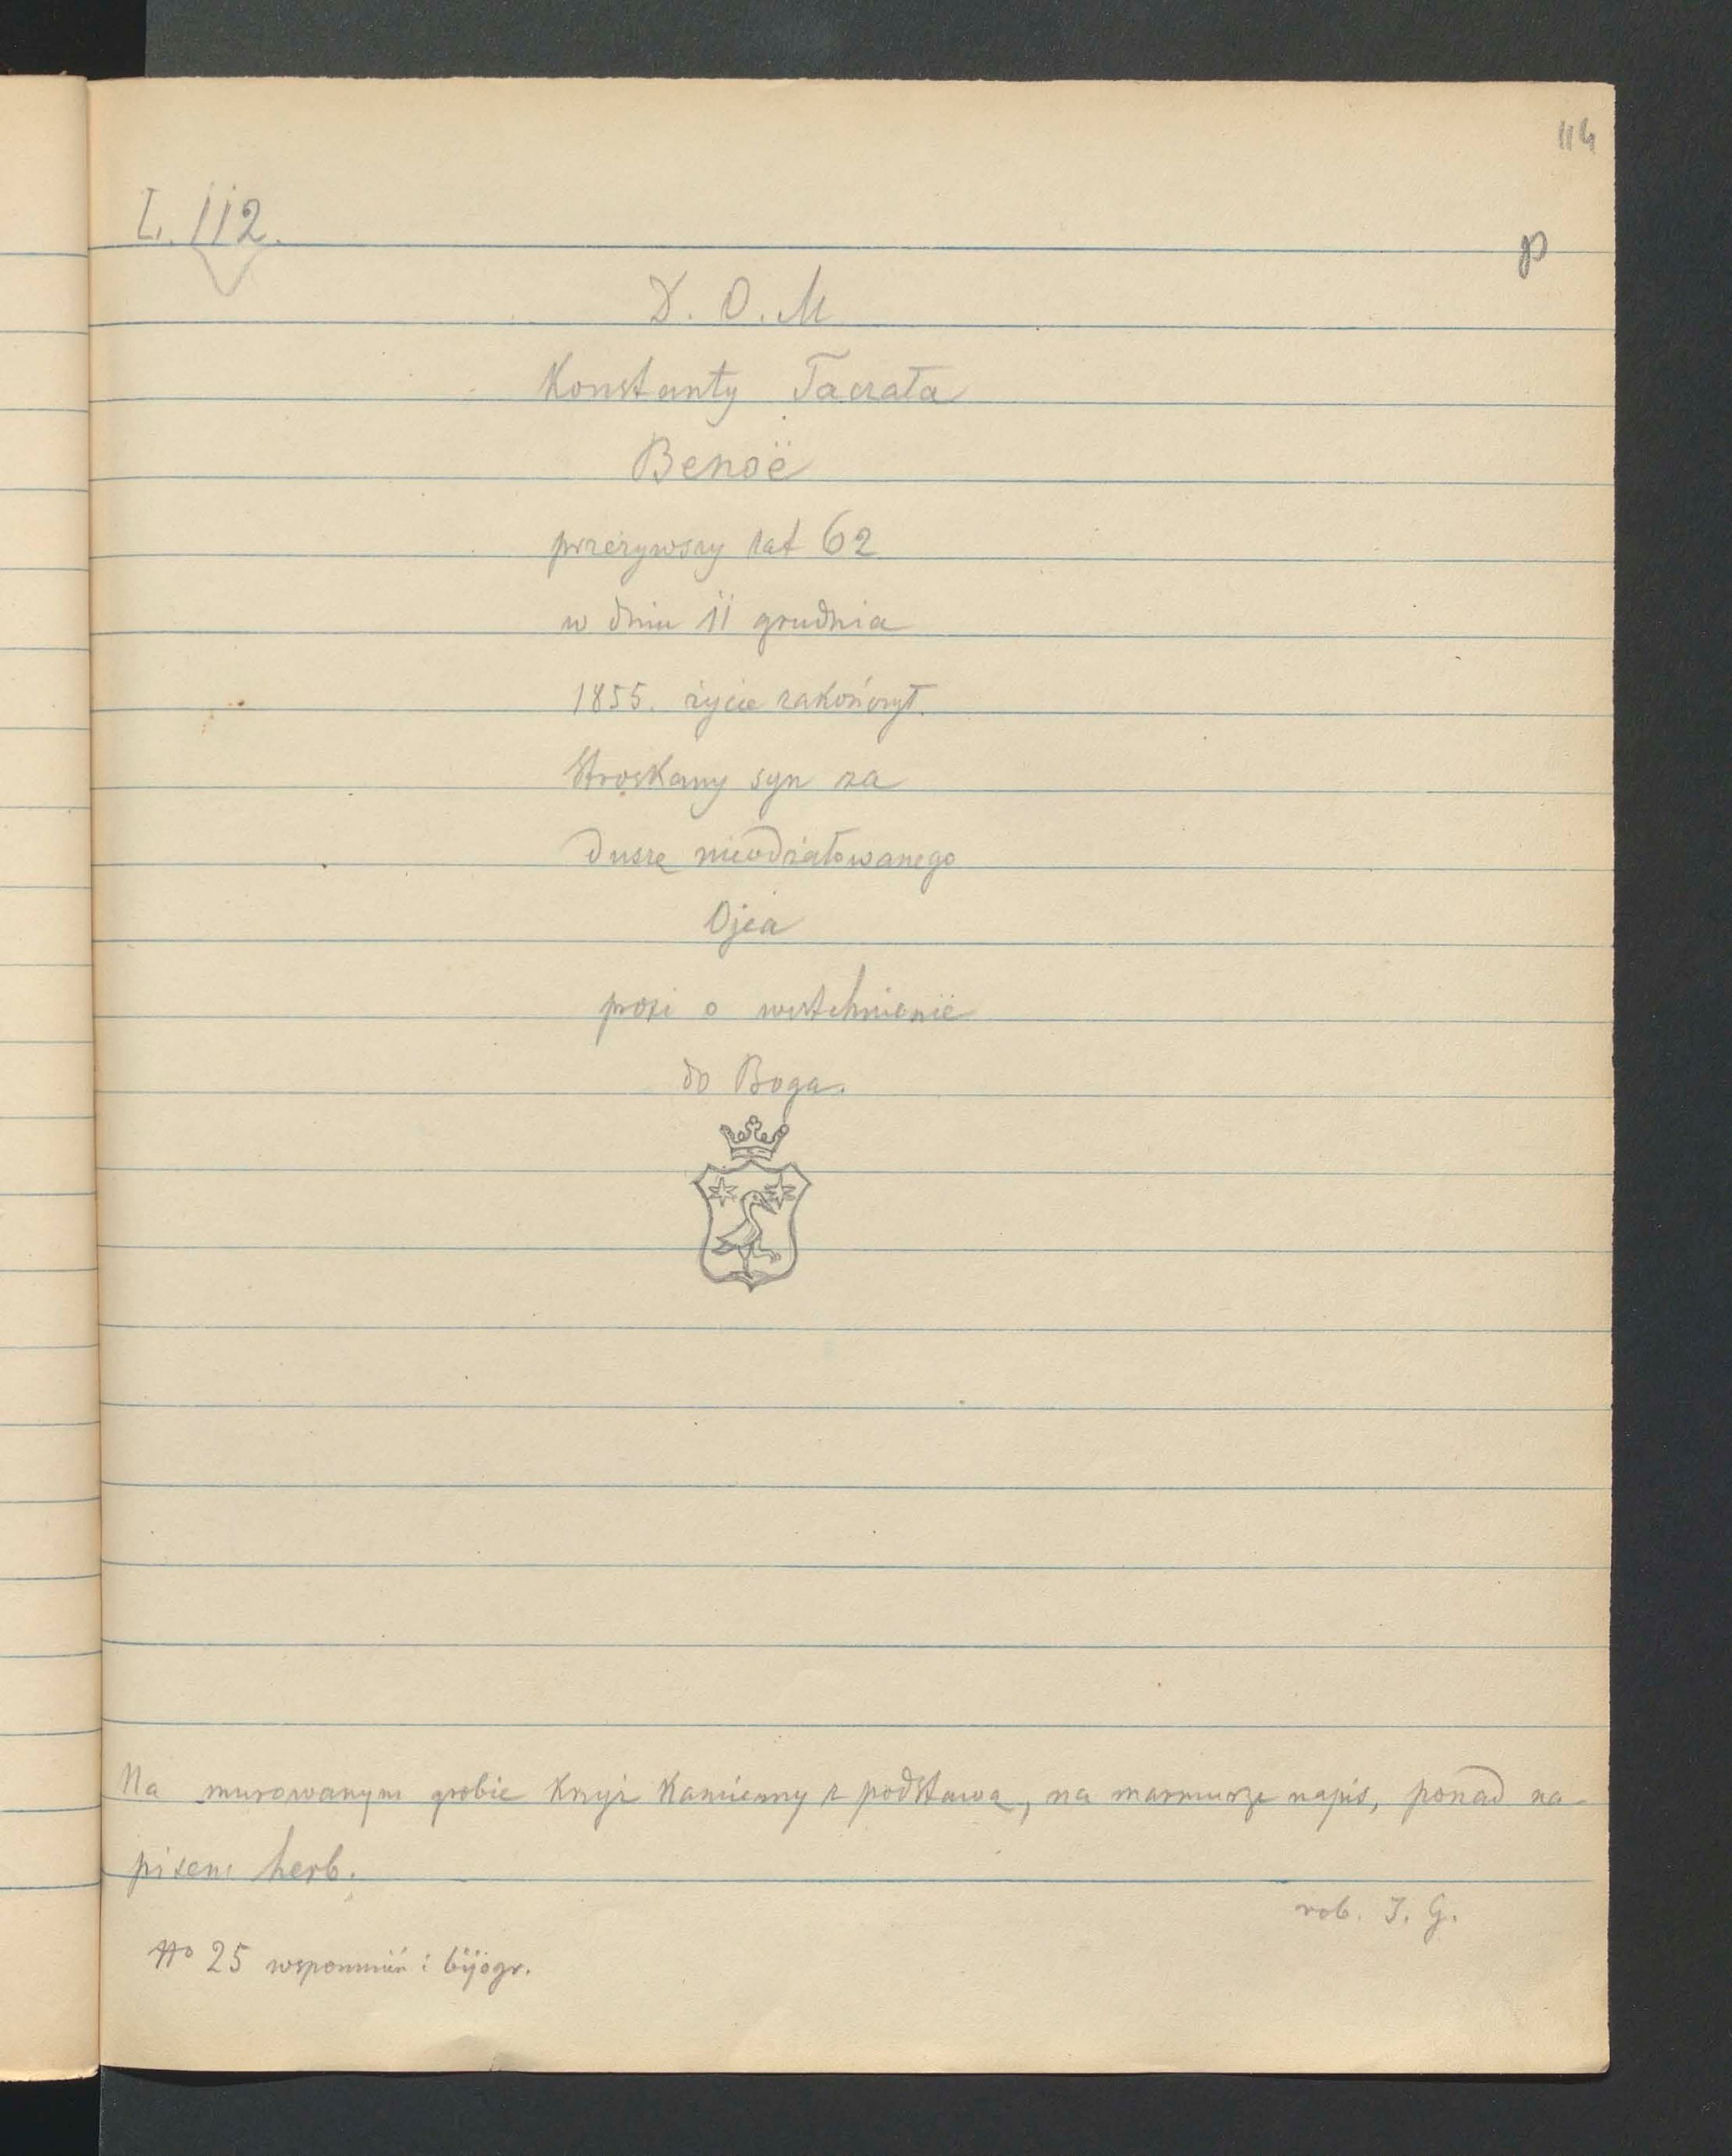 114
L. 112.
p
D. O. M
Konstanty Taczała
Benoë
przeżywszy lat 62
w dniu 11 grudnia
1855. życie zakończył.
Stroskany syn za
duszę nieodżałowanego
Ojca
prosi o westchnienie
do Boga.
Na murowanym grobie krzyż kamienny z podstawą, na marmurze napis, ponad na-
pisem herb.
rob. J. G.
No 25 wspomnień i bijogr.